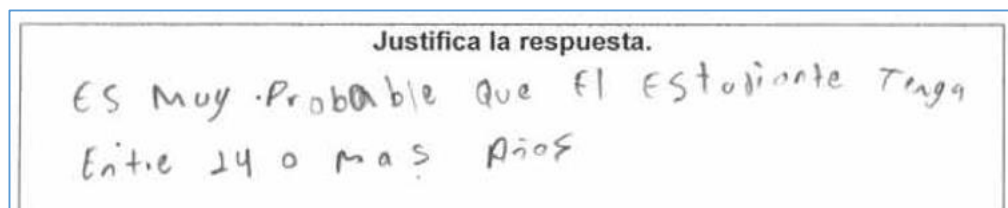 Justifica la respuesta.
ES Muy Probable Que El Estudiante Tenga
Entre 14 o mas Años